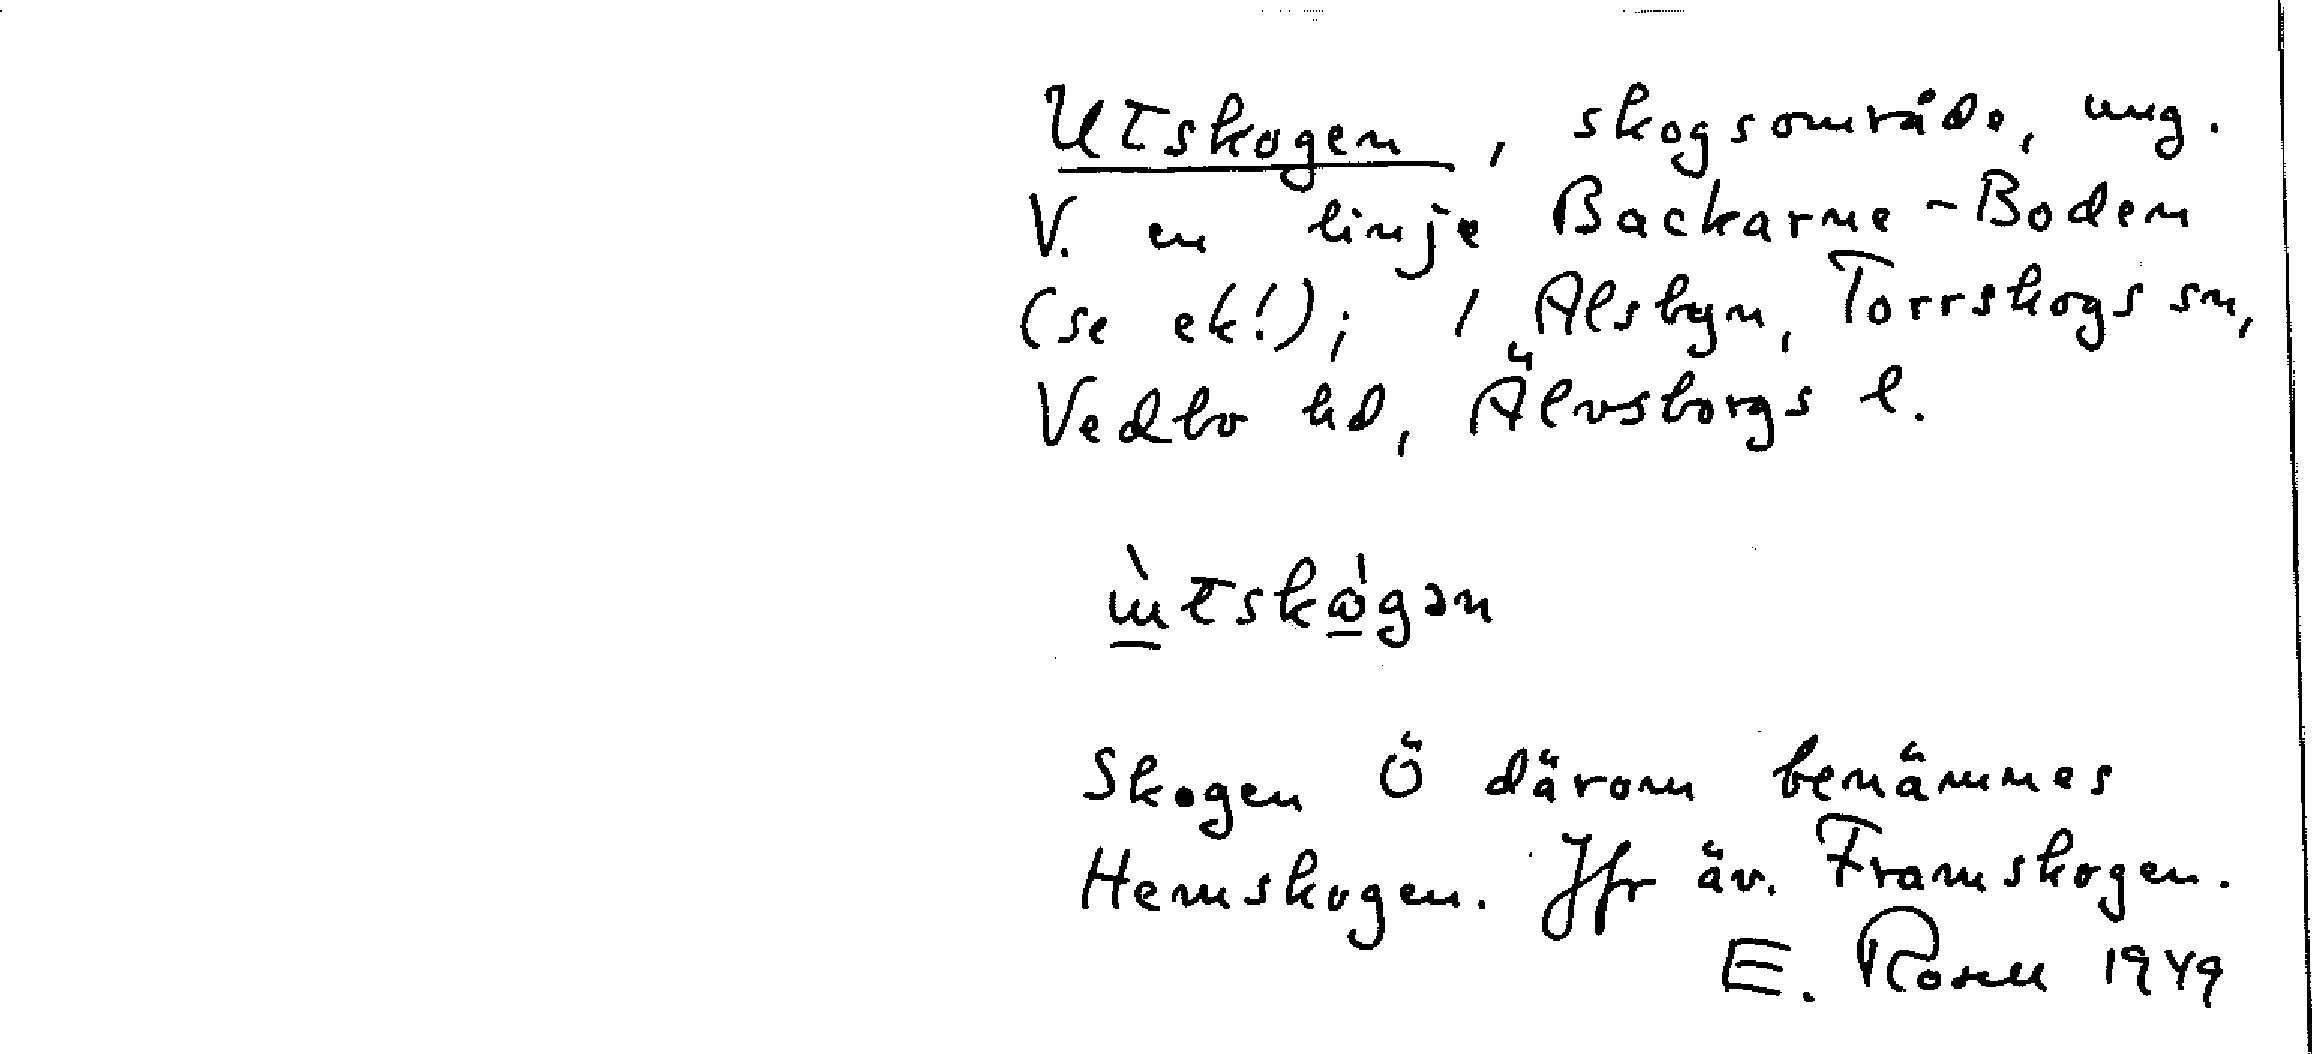 Utskogen, skogsområde, ung.
V. en linje Backarne - Boden
(se ek!); i Alsbyn, Torrskogs sn,
Vedbo hd, Älvsborgs l.
ùtskógən
Skogen Ö därom benämnes
Hemskogen. Jfr äv. Framskogen.
E. Rosell 1949